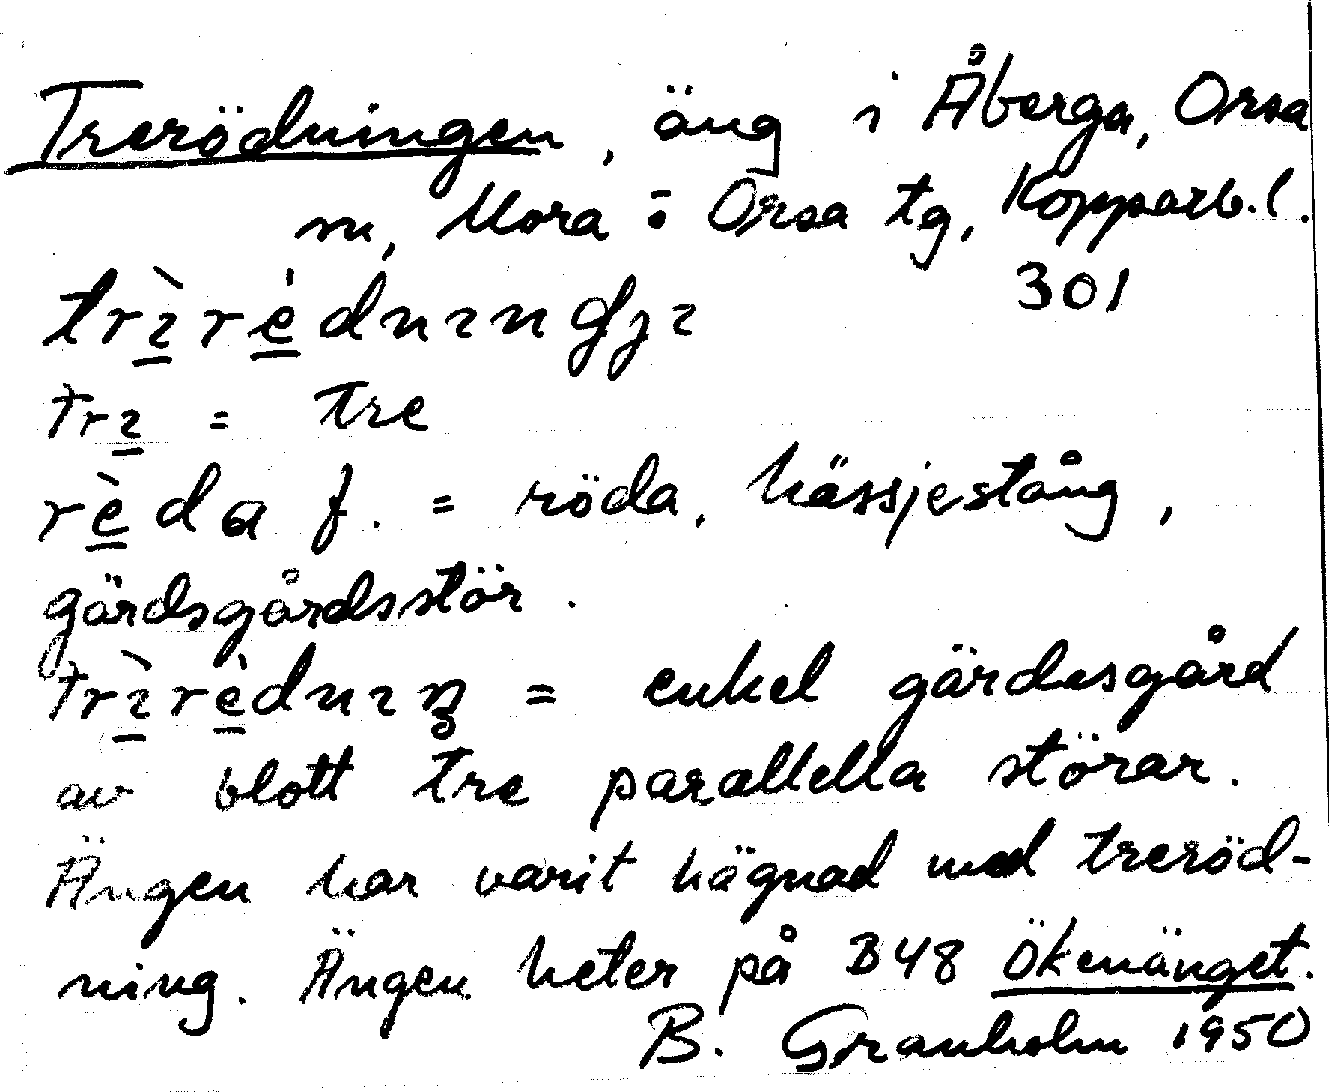 Trerödningen, äng i Åberga, Orsa
sn, Mora o. Orsa tg, Kopparb. l.
301
trɩ̀rèdnɩngjɩ
trɩ = tre
rèda f. = röda, hässjestång,
gärdsgårdsstör.
trɩ̀rèdnɩŋ = enkel gärdesgård
av blott tre parallella störar.
Ängen har varit hägnad med treröd-
ning. Ängen heter på B48 Ökenänget.
B. Granholm 1950